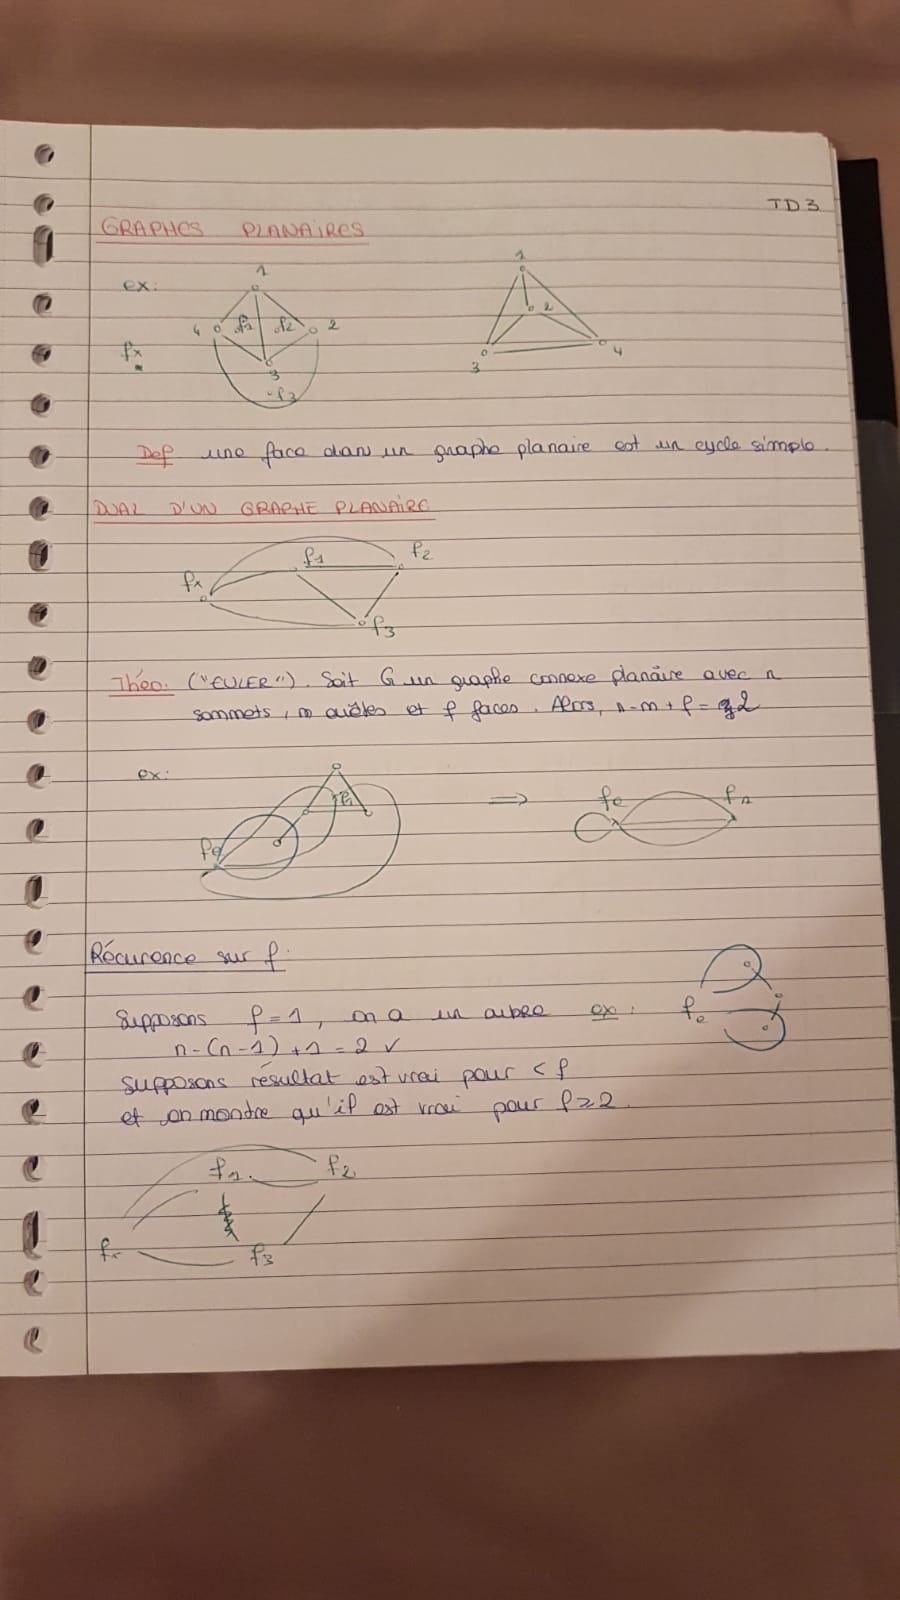 TD3
GRAPHES PLANAIRES
ex:
1
4 f1 f2 2
3
f3
fx
1
2
3
4
Def une face dans un graphe planaire est un cycle simple.
DUAL D'UN GRAPHE PLANAIRE
fx f1 f2
f3
Théo. ("EULER"). Soit G un graphe connexe planaire avec n
sommets, m arêtes et f faces. Alors, n-m+f = 2
ex:
⇒
Récurence sur f:
Supposons f=1, on a un arbre ex:
n-(n-1)+1=2 ✓
supposons résultat est vrai pour < f
et on montre qu'il est vrai pour f≥2.
f1 f2
f3